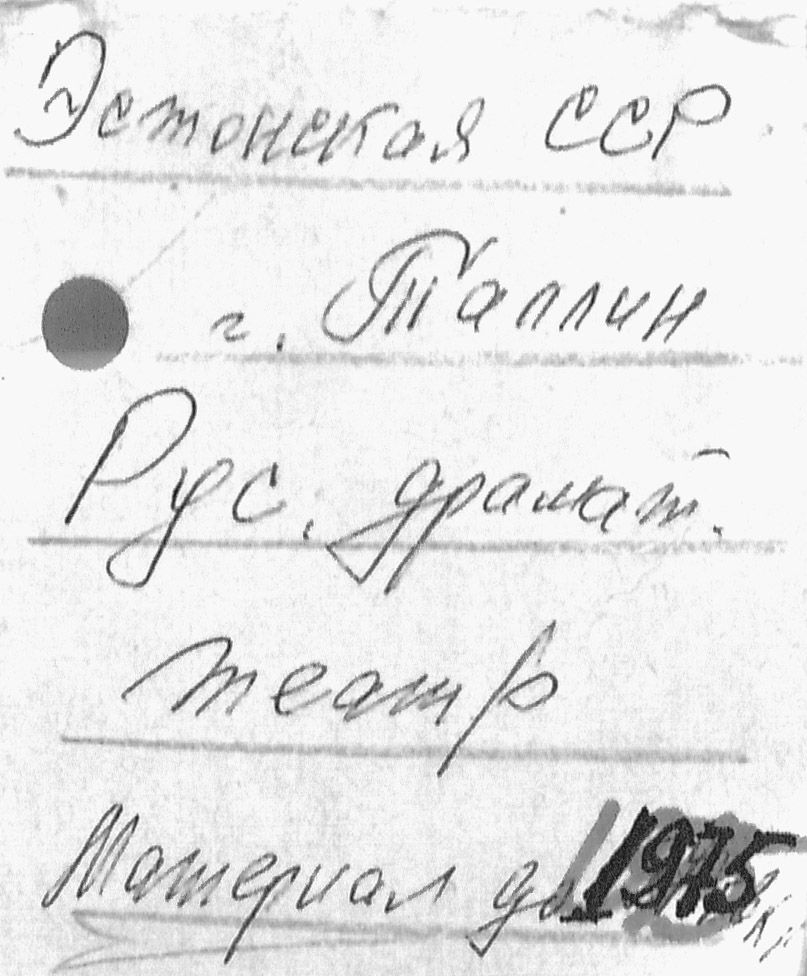 Эстонская ССР
г. Таллин
Рус. драмат.
театр
Материал до 1975